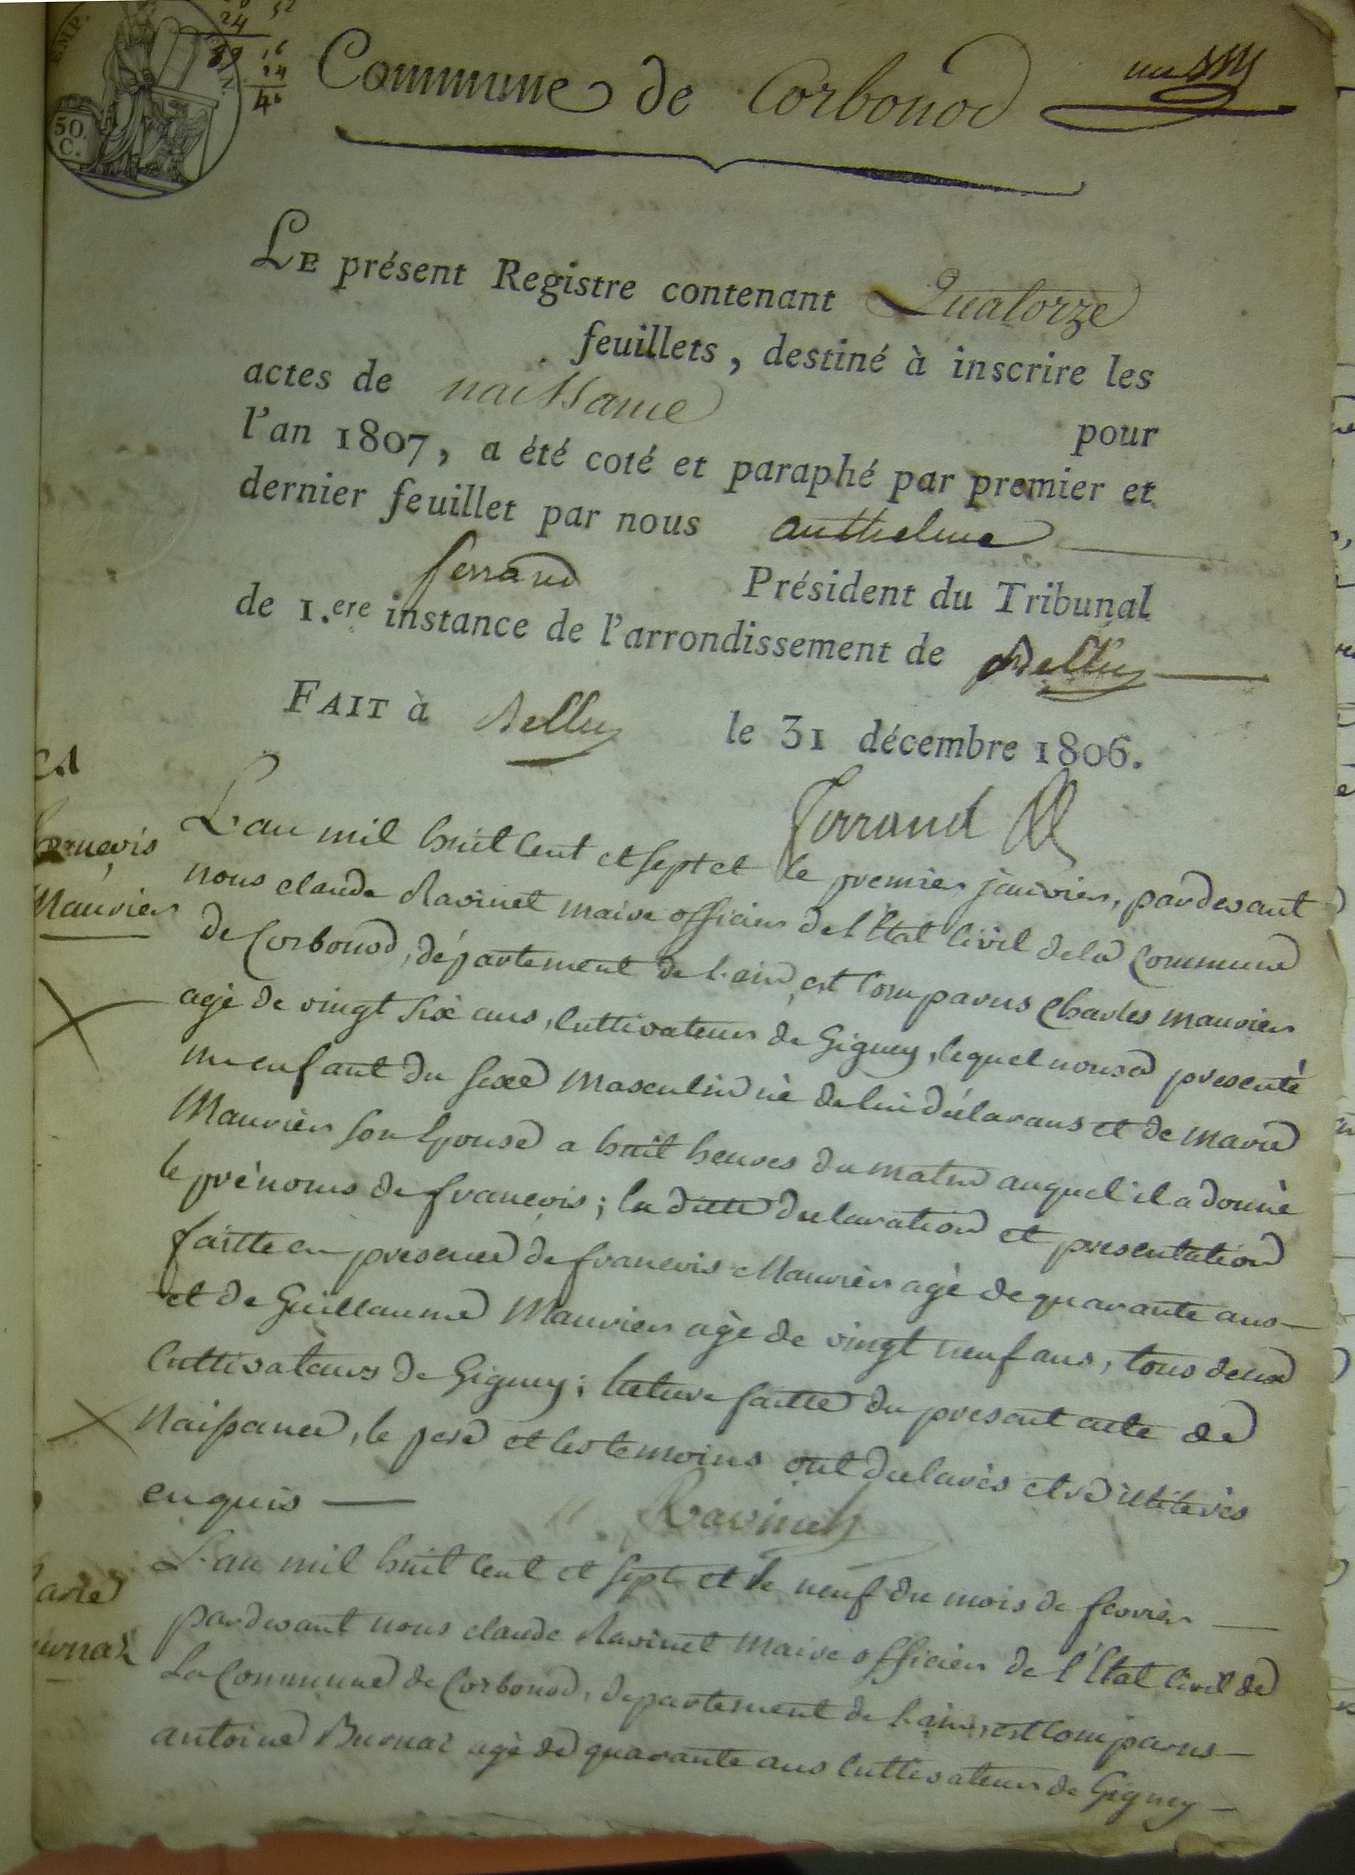 50. C.
24
16
24
Commune de Corbonod
Le présent Registre contenant Quatorze
feuillets, destiné à inscrire les
actes de naissance pour
l'an 1807, a été coté et paraphé par premier et
dernier feuillet par nous anthelme
ferrand Président du Tribunal
de 1.ere instance de l'arrondissement de Belley
Fait à Belley le 31 décembre 1806.
Ferrand
françois
Mauvier
L'an mil huit cent et sept et le premier janvier, pardevant
nous claude Ravinet maire officier de l'Etat Civil de la Commune
de Corbonod, département de l'ain, est Comparus Charles mauvier
agé de vingt six ans, Cultivateur de Gigney, lequel nous a presenté
un enfant du sexe Masculin né de lui déclarans et de marie
Mauvier son Epouse a huit heures du matin auquel il a donné
le prénoms de françois; la ditte declaration et presentation
faitte en presence de françois Mauvier agé de quarante ans
et de Guillaume Mauvier agé de vingt neuf ans, tous deux
Cultivateurs de Gigney; lecture faitte du present acte de
Naissance, le pere et les temoins ont declarés etre illiterés
enquis
Ravinet
L'an mil huit Cent et sept et le neuf du mois de fevrier
pardevant nous claude Ravinet Maire officier de l'Etat Civil de
La Commune de Corbonod, departement de l'ain, est Comparus
antoine Burnaz agé de quarante ans Cultivateur de Gigney